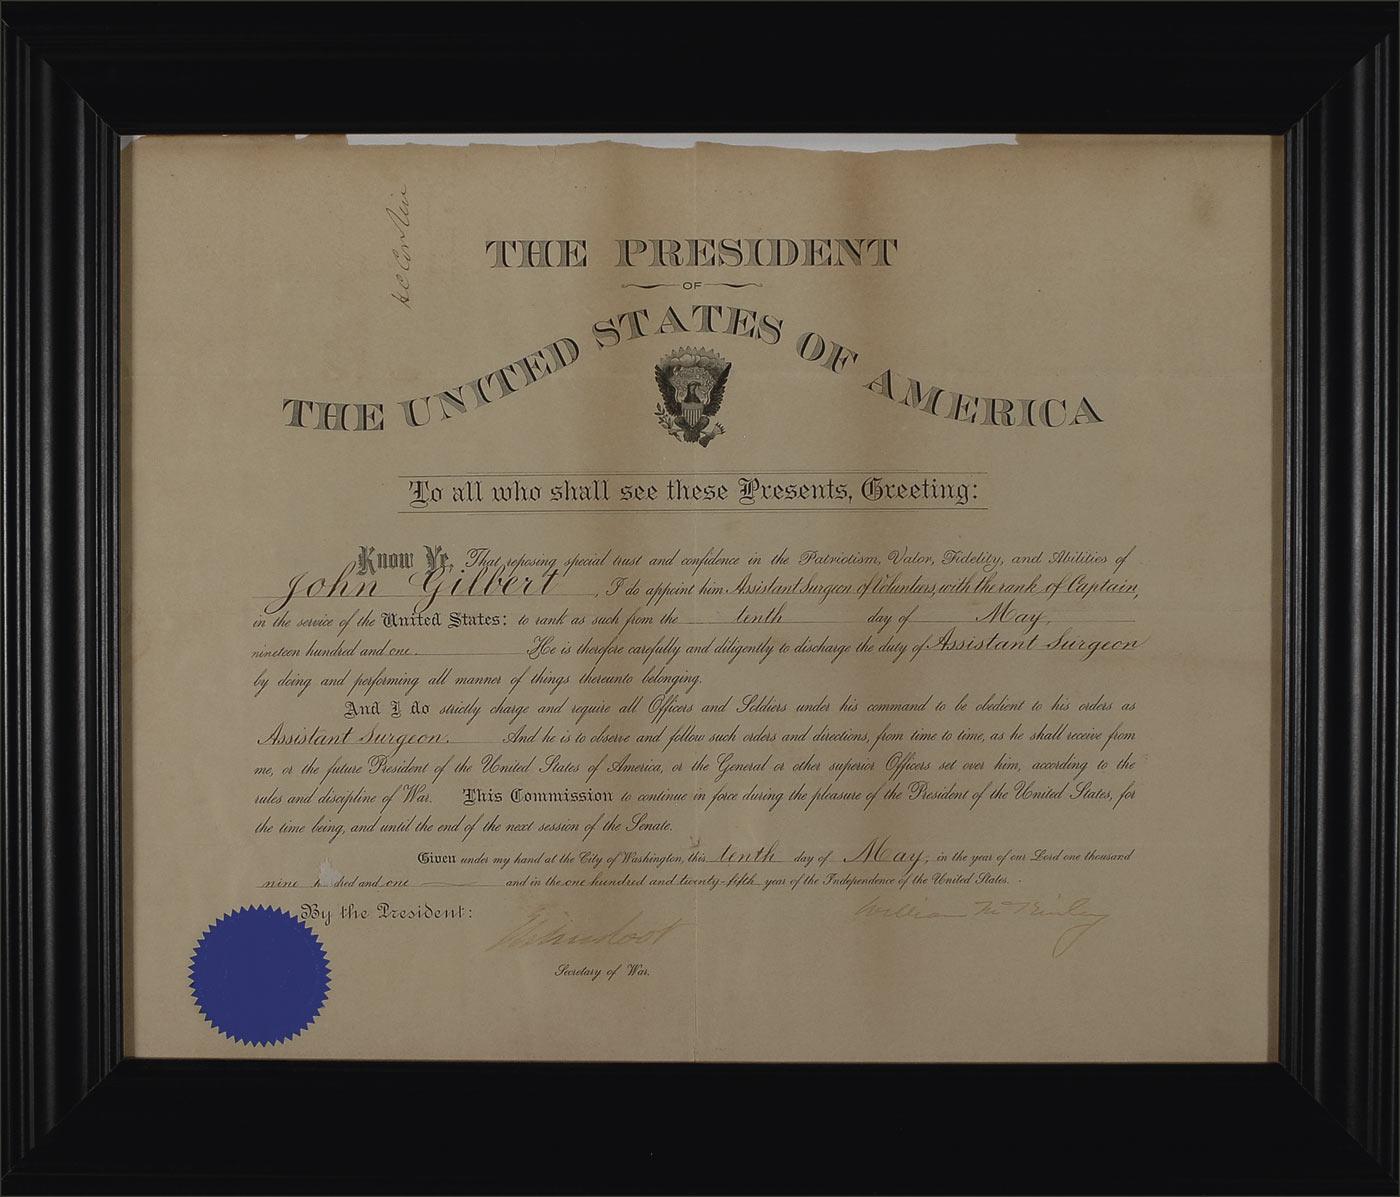 THE PRESIDENT
OF
THE UNITED STATES OF AMERICA
To all who shall see these Presents, Greeting:
Know Ye, That reposing special trust and confidence in the Patriotism, Valor, Fidelity, and Abilities of
John Gilbert, I do appoint him Assistant Surgeon of Volunteers, with the rank of Captain,
in the service of the United States: to rank as such from the tenth day of May,
nineteen hundred and one. He is therefore carefully and diligently to discharge the duty of Assistant Surgeon
by doing and performing all manner of things thereunto belonging.
And I do strictly charge and require all Officers and Soldiers under his command to be obedient to his orders as
Assistant Surgeon. And he is to observe and follow such orders and directions, from time to time, as he shall receive from
me, or the future President of the United States of America, or the General or other superior Officers set over him, according to the
rules and discipline of War. This Commission to continue in force during the pleasure of the President of the United States, for
the time being, and until the end of the next session of the Senate.
Given under my hand at the City of Washington, this tenth day of May, in the year of our Lord one thousand
nine h dred and one and in the one hundred and twenty-fifth year of the Independence of the United States.
William McKinley
By the President:
Elihu Root
Secretary of War.